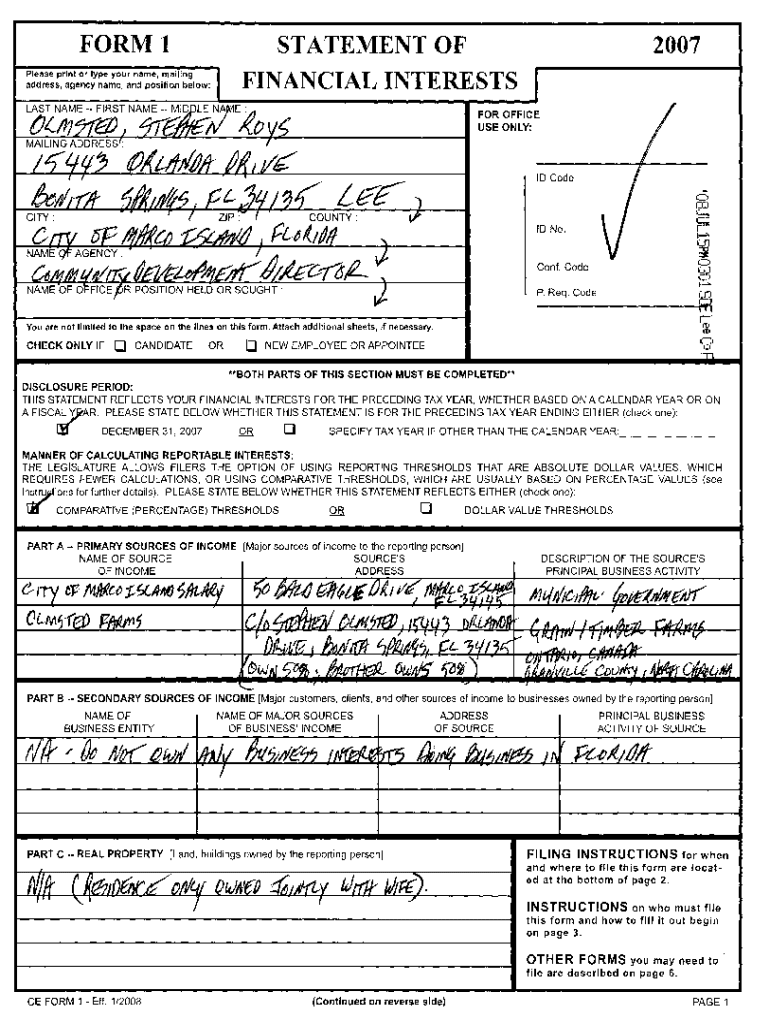 FORM 1
STATEMENT OF
2007
Please print or type your name, mailing
address, agency name, and position below:
FINANCIAL INTERESTS
LAST NAME -- FIRST NAME -- MIDDLE NAME :
OLMSTED, STEPHEN ROYS
MAILING ADDRESS :
15443 ORLANDA DRIVE
BONITA SPRINGS, FL 34135 LEE
CITY : ZIP : COUNTY :
CITY OF MARCO ISLAND, FLORIDA
NAME OF AGENCY :
COMMUNITY DEVELOPMENT DIRECTOR
NAME OF OFFICE OR POSITION HELD OR SOUGHT :
You are not limited to the space on the lines on this form. Attach additional sheets, if necessary.
CHECK ONLY IF CANDIDATE OR NEW EMPLOYEE OR APPOINTEE
FOR OFFICE
USE ONLY:
ID Code
ID No.
Conf. Code
P. Req. Code
'08JUL15PM0301 SOE Lee Co Fl
**BOTH PARTS OF THIS SECTION MUST BE COMPLETED**
DISCLOSURE PERIOD:
THIS STATEMENT REFLECTS YOUR FINANCIAL INTERESTS FOR THE PRECEDING TAX YEAR, WHETHER BASED ON A CALENDAR YEAR OR ON
A FISCAL YEAR. PLEASE STATE BELOW WHETHER THIS STATEMENT IS FOR THE PRECEDING TAX YEAR ENDING EITHER (check one):
DECEMBER 31, 2007 OR SPECIFY TAX YEAR IF OTHER THAN THE CALENDAR YEAR:
MANNER OF CALCULATING REPORTABLE INTERESTS:
THE LEGISLATURE ALLOWS FILERS THE OPTION OF USING REPORTING THRESHOLDS THAT ARE ABSOLUTE DOLLAR VALUES, WHICH
REQUIRES FEWER CALCULATIONS, OR USING COMPARATIVE THRESHOLDS, WHICH ARE USUALLY BASED ON PERCENTAGE VALUES (see
instructions for further details). PLEASE STATE BELOW WHETHER THIS STATEMENT REFLECTS EITHER (check one):
COMPARATIVE (PERCENTAGE) THRESHOLDS OR DOLLAR VALUE THRESHOLDS
PART A -- PRIMARY SOURCES OF INCOME [Major sources of income to the reporting person]
NAME OF SOURCE SOURCE'S DESCRIPTION OF THE SOURCE'S
OF INCOME ADDRESS PRINCIPAL BUSINESS ACTIVITY
CITY OF MARCO ISLAND SALARY 50 BALD EAGLE DRIVE, MARCO ISLAND MUNICIPAL GOVERNMENT
FL 34145
OLMSTED FARMS C/O STEPHEN OLMSTED, 15443 ORLANDA GRAIN / TIMBER FARMS
DRIVE, BONITA SPRINGS, FL 34135 ONTARIO, CANADA
(OWN 50%; BROTHER OWNS 50%) GRANVILLE COUNTY, NORTH CAROLINA
PART B -- SECONDARY SOURCES OF INCOME [Major customers, clients, and other sources of income to businesses owned by the reporting person]
NAME OF NAME OF MAJOR SOURCES ADDRESS PRINCIPAL BUSINESS
BUSINESS ENTITY OF BUSINESS' INCOME OF SOURCE ACTIVITY OF SOURCE
N/A - DO NOT OWN ANY BUSINESS INTERESTS DOING BUSINESS IN FLORIDA
PART C -- REAL PROPERTY [Land, buildings owned by the reporting person]
N/A (RESIDENCE ONLY OWNED JOINTLY WITH WIFE).
FILING INSTRUCTIONS for when
and where to file this form are locat-
ed at the bottom of page 2.
INSTRUCTIONS on who must file
this form and how to fill it out begin
on page 3.
OTHER FORMS you may need to
file are described on page 6.
CE FORM 1 - Eff. 1/2008 (Continued on reverse side) PAGE 1